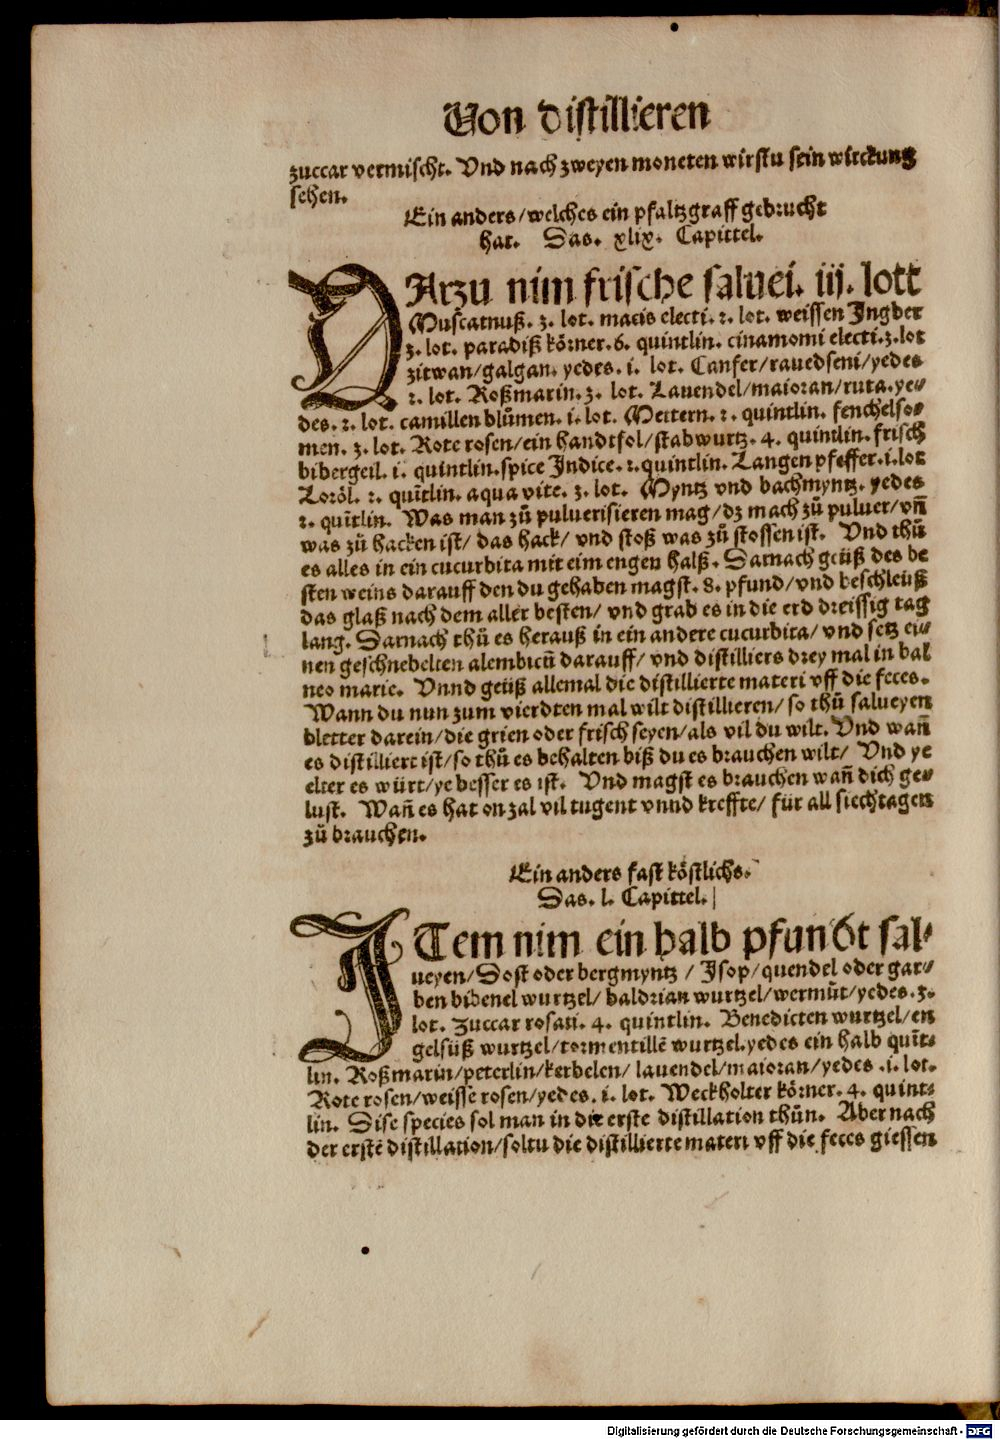 Von distillieren
zuccar vermischt. Vnd nach zweyen moneten wirstu sein wirckung
sehen.
Ein anders/welches ein pfaltzgraff gebrucht
hat. Das. xlix. Capittel.
DArzu nim frische saluei. iij. lott
Muscatnuß. 3. lot. macis electi. 2. lot. weissen Jngber
3. lot. paradiß körner. 6. quintlin. cinamomi electi. 3. lot
zitwan/galgan. yedes. i. lot. Canfer/rauedseni/yedes
2. lot. Roßmarin. 3. lot. Lauendel/maioran/ruta. ye⸗
des. 2. lot. camillen blůmen. i. lot. Mettern. 2. quintlin. fenchelso⸗
men. 3. lot. Rote rosen/ein handtfol/stabwurtz. 4. quintlin. frisch
bibergeil. i. quintlin. spice Jndice. 2. quintlin. Langen pfeffer. i. lot
Loröl. 2. quītlin. aqua vite. 3. lot. Myntz vnd bachmyntz. yedes
2. quītlin. Was man zů puluerisieren mag/dz mach zů puluer/vñ
was zů hacken ist/ das hack/ vnd stoß was zů stossen ist. Vnd thů
es alles in ein cucurbita mit eim engen halß. Darnach geüß des be
sten weins darauff den du gehaben magst. 8. pfund/vnd beschleüß
das glaß nach dem aller besten/ vnd grab es in die erd dreissig tag
lang. Darnach thů es herauß in ein andere cucurbita/ vnd setz ei⸗
nen geschnebelten alembicū darauff/ vnd distilliers drey mal in bal
neo marie. Vnnd geüß allemal die distillierte materi vff die feces.
Wann du nun zum vierdten mal wilt distillieren/ so thů salueyen
bletter darein/die grien oder frisch seyen/als vil du wilt. Vnd wañ
es distilliert ist/so thů es behalten biß du es brauchen wilt/ Vnd ye
elter es würt/ye besser es ist. Vnd magst es brauchen wañ dich ge⸗
lust. Wañ es hat on zal vil tugent vnnd kreffte/ für all siechtagen
zů brauchen.
Ein anders fast köstlichs.
Das. l. Capittel.
JTem nim ein halb pfundt sal⸗
ueyen/Dost oder bergmyntz / Jsop/quendel oder gar⸗
ben bibenel wurtzel/ baldrian wurtzel/wermůt/yedes. 3.
lot. zuccar rosati. 4. quintlin. Benedicten wurtzel/en
gelsüß wurtzel/tormentillē wurtzel. yedes ein halb quīt⸗
lin. Roßmarin/peterlin/kerbelen/ lauendel/maioran/yedes . i. lot.
Rote rosen/weisse rosen/yedes. i. lot. Weckholter körner. 4. quint⸗
lin. Dise species sol man in die erste distillation thůn. Aber nach
der erstē distillation/soltu die distillierte materi vff die feces giessen
Digitalisierung gefördert durch die Deutsche Forschungsgemeinschaft - DFG